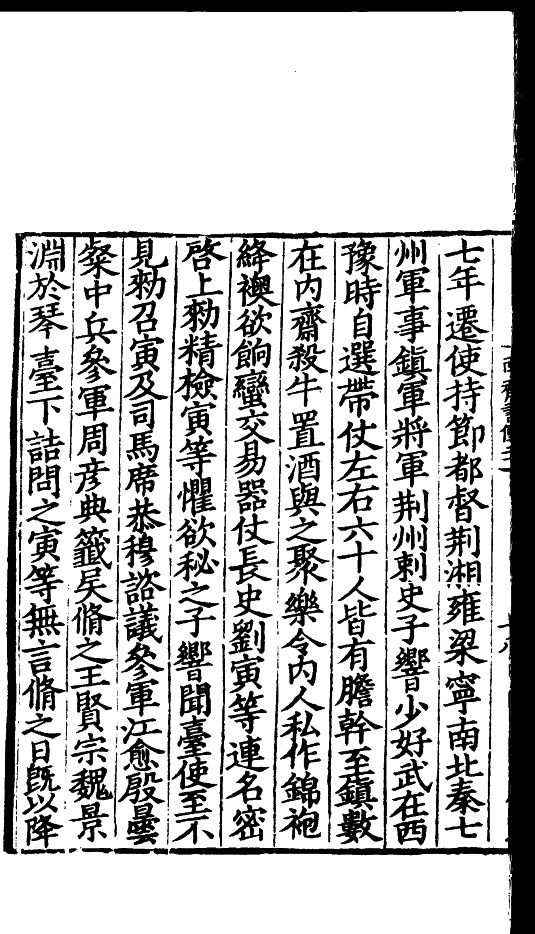 七年遷使持節都督荆湘雍梁寧南北秦七
州軍事鎭軍將軍荆州刺史子響少好武在西
豫時自選帶仗左右六十人皆有膽幹至鎭數
在内齋殺牛置酒與之聚樂令内人私作錦袍
絳襖欲餉蠻交易器仗長史劉寅等連名密
啓上勑精檢寅等懼欲秘之子響聞臺使至不
見勑召寅及司馬席恭穆諮議參軍江愈殷曇
粲中兵參軍周彦典籖吴脩之王賢宗魏景
淵於琴臺下詰問之寅等無言脩之曰旣以降